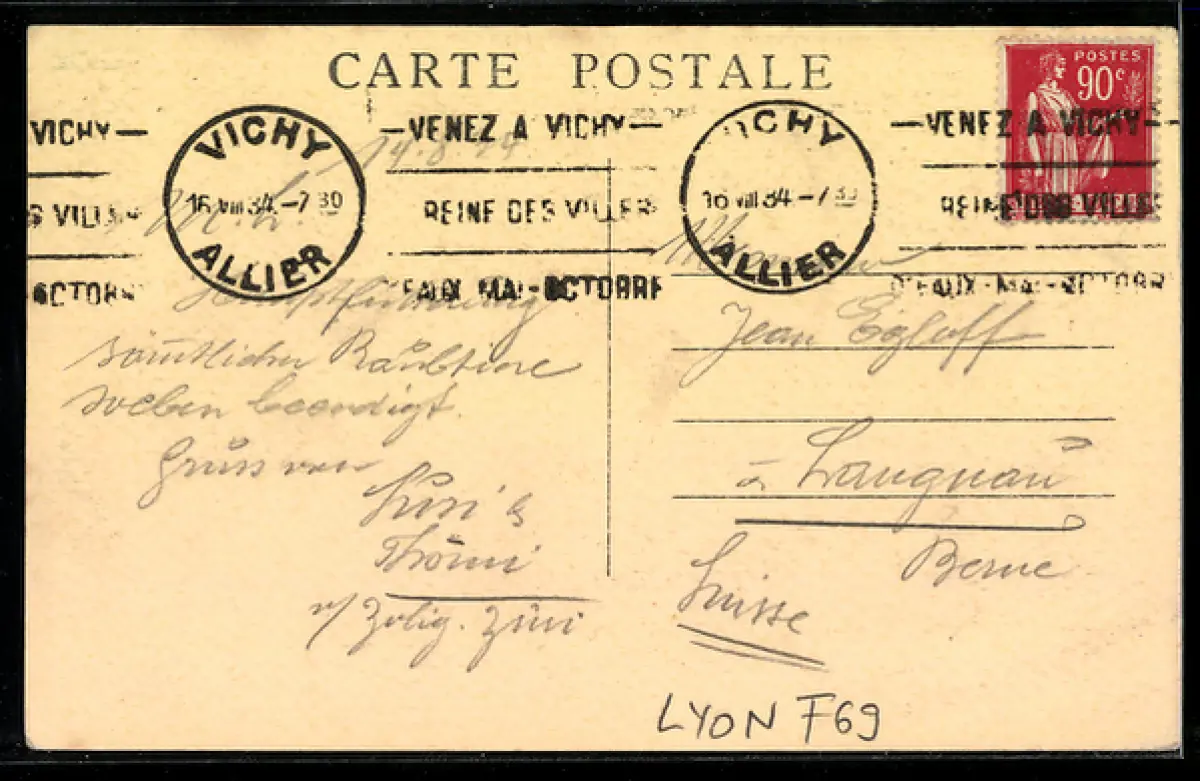 CARTE POSTALE
POSTES
90c
VICHY —
— VENEZ A VICHY —
— VENEZ A VICHY —
S VILLES
REINE DES VILLES
REINE DES VILLES
OCTOBR
D'EAUX - MAI - OCTOBRE
D'EAUX - MAI - OCTOBR
VICHY
16 VIII 34 - 7 30
ALLIER
VICHY
16 VIII 34 - 7 30
ALLIER
14.8.34
M. L.
sämtlicher Raubtiere
soeben beendigt.
Gruss von
&
v/ Züri
Monsieur
Jean Egloff
à Langnau
Berne
Suisse
LYON F69